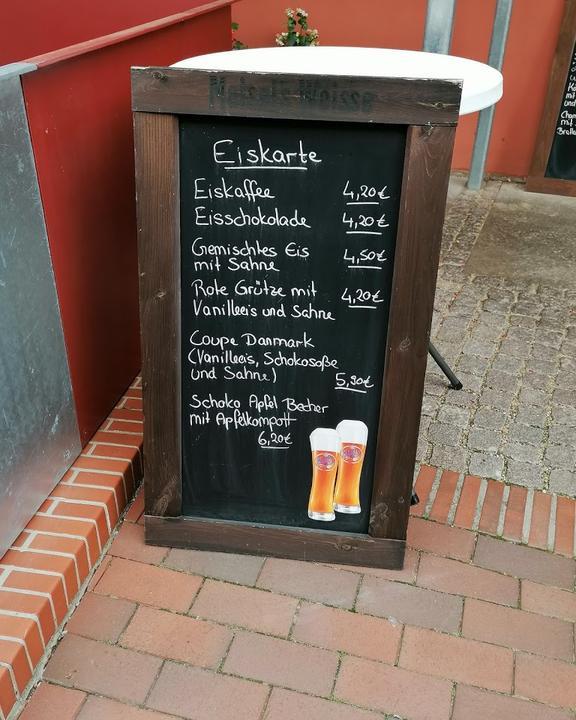 Meisel's Weisse
Eiskarte
Eiskaffee 4,20€
Eisschokolade 4,20€
Gemischtes Eis
mit Sahne 4,50€
Rote Grütze mit
Vanilleeis und Sahne 4,20€
Coupe Danmark
(Vanilleeis, Schokosoße
und Sahne) 5,90€
Schoko Apfel Becher
mit Apfelkompott
6,20€